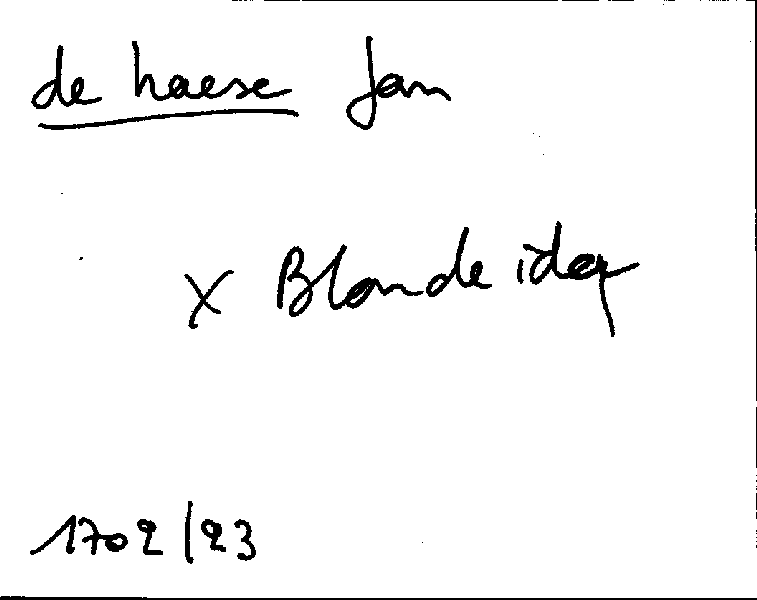 de haese Jan
x Blonde ida
1702/23